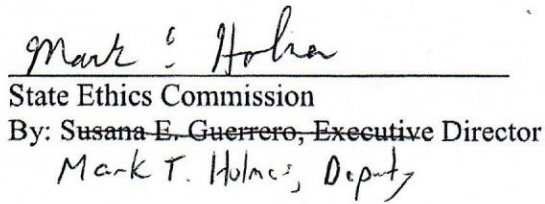 Mark Holmes
State Ethics Commission
By: Susana E. Guerrero, Executive Director
Mark T. Holmes, Deputy